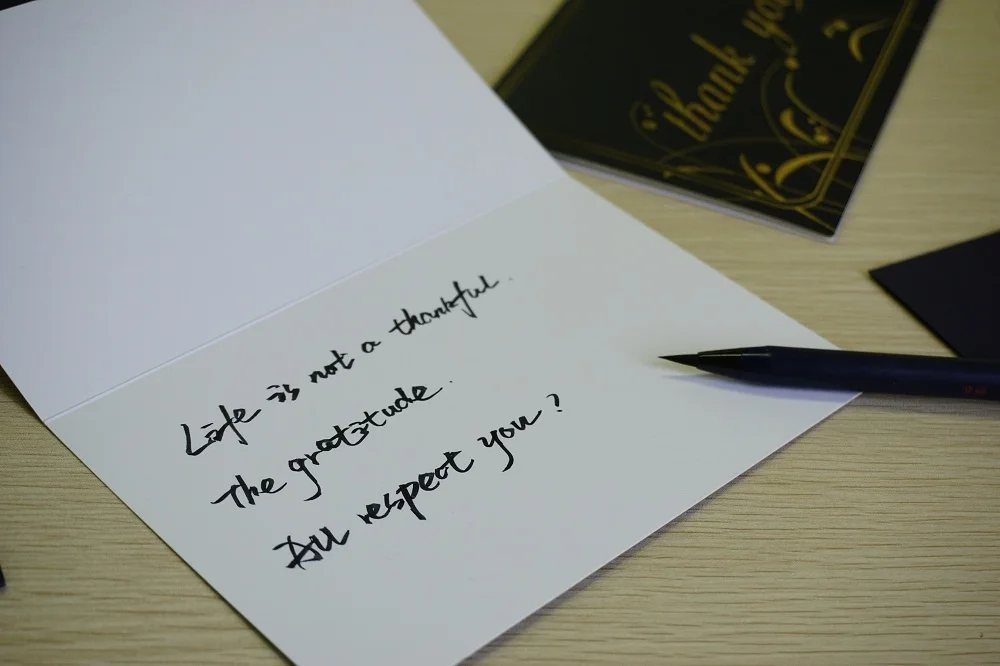 thank you
Life is not a thankful.
The gratitude.
All respect you?